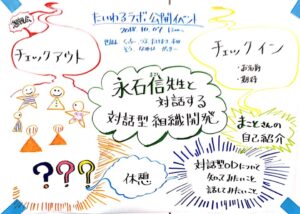 たいわるラボ公開イベント
2018.10.07
チェックアウト
チェックイン
・お名前
・期待
永石信先生と
対話する
対話型組織開発
まことさんの
自己紹介
???
休憩
対話型ODについて
知ってみたいこと
話してみたいこと